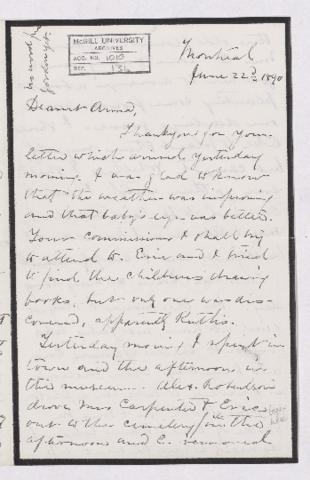 McGILL UNIVERSITY
ARCHIVES
ACC. NO. 1010
REF.
Montreal
June 22d 1890
Dearest Anna,
Thank you for your
letter which arrived yesterday
morning. I was glad to know
that the weather was improving
and that baby's eye was better.
Your commissions I shall try
to attend to. Eric and I tried
to find the childrens drawing
books, but only one was dis-
covered, apparently Ruth's.
Yesterday morning I spent in
town and the afternoon in
the museum. Alex. Robertson
drove Mrs Carpenter & Eric
out to the cemetery in the
afternoon and E. removed